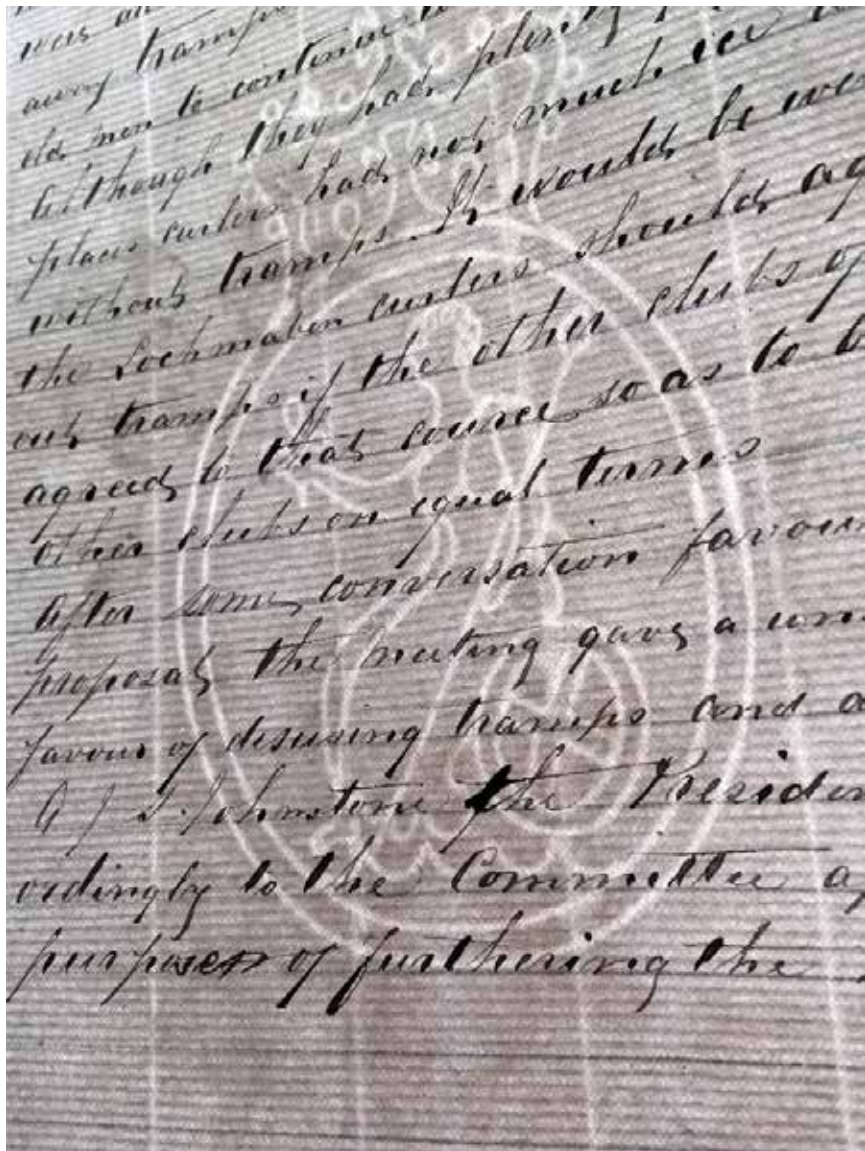 was an
away tramps
old men to continue
although they had plenty
places curlers had not much ice
without tramps. It would be
the Lochmaben curlers should
out tramps if the other clubs of
agreed to that course so as to
other clubs on equal terms
After some conversation
proposal the meeting gave a
favour of disusing tramps and
Johnstone the
to the Committee
purposes of furthering the